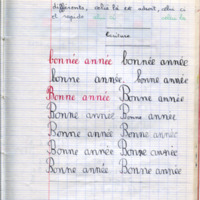 différents, celui là est absent, celui ci
et rapide
Ecriture
bonnée année bonnée année
bonne année. bonne année
Bonne année Bonne année
Bonne année Bonne année
Bonne année Bonne année
Bonne année Bonne année
Bonne année Bonne année
Bonne année Bonne année